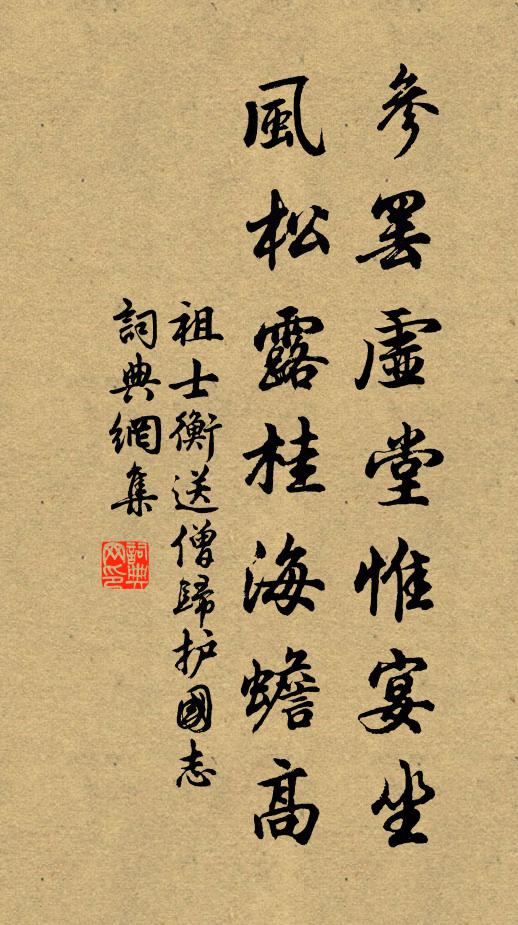 參罢虛堂惟宴坐
風松露桂海蟾高
祖士衡送僧歸护國志
詞典網集
詞典网印